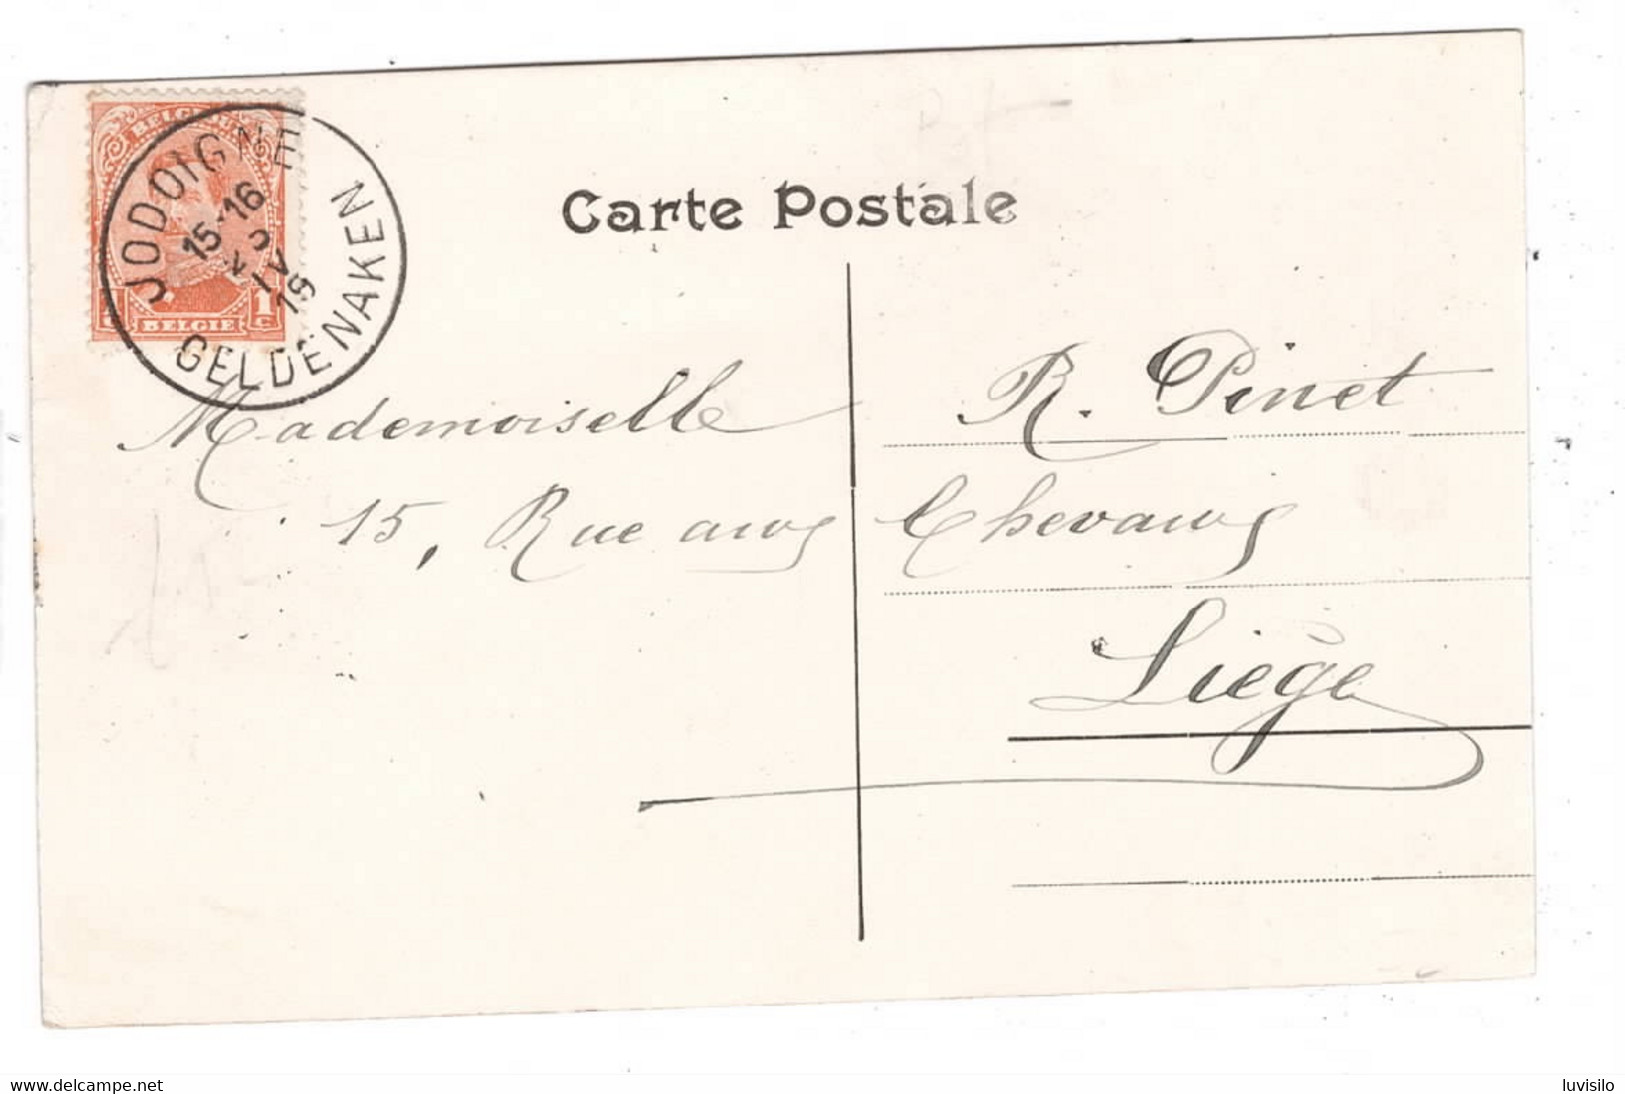 BELGIQUE
JODOIGNE
15-16
IV
19
GELDENAKEN
1 c
BELGIE
Carte Postale
Mademoiselle R. Pinet
15, Rue aux Chevaux
Liège
www.delcampe.net
luvisilo